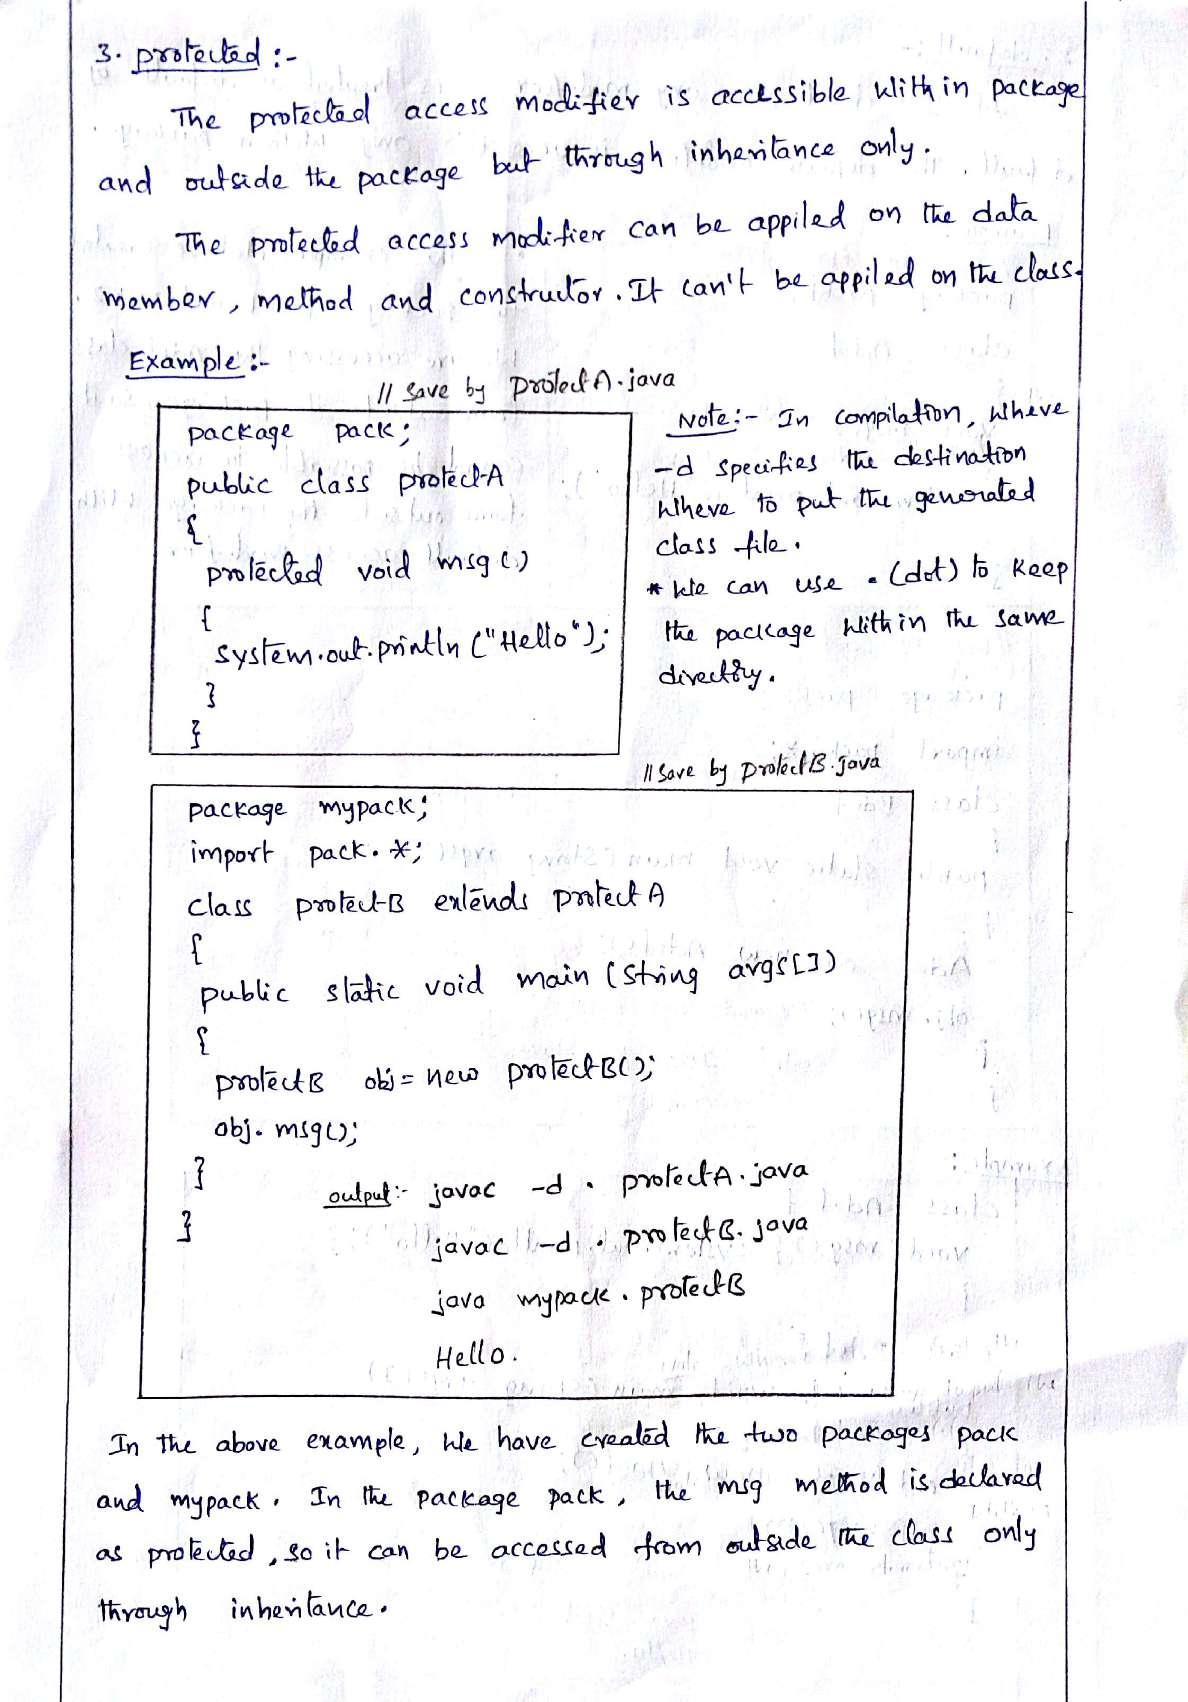 3. protected :-
The protected access modifier is accessible within package
and outside the package but through inheritance only.
The protected access modifier can be appiled on the data
member, method and constructor. It can't be appiled on the class.
Example :-
// Save by protectA.java
package pack;
public class protectA
{
protected void msg()
{
system.out.println("Hello");
}
}
Note:- In compilation, where
-d specifies the destination
where to put the generated
class file.
* We can use . (dot) to keep
the package within the same
directory.
// Save by protectB.java
package mypack;
import pack.*;
class protectB extends protectA
{
public static void main (String args[])
{
protectB obj = new protectB();
obj.msg();
}
}
output:- javac -d . protectA.java
javac -d . protectB.java
java mypack.protectB
Hello.
In the above example, we have created the two packages pack
and mypack. In the package pack, the msg method is declared
as protected, so it can be accessed from outside the class only
through inheritance.